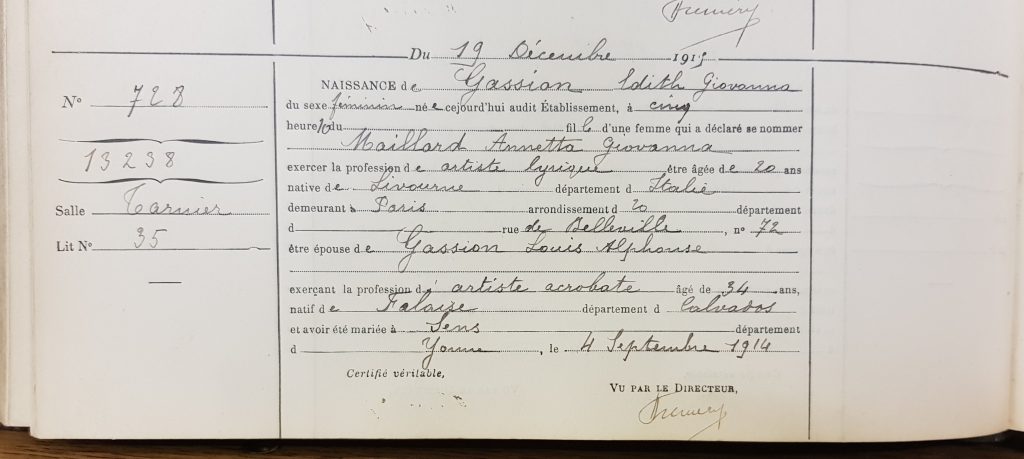 Du 19 Décembre 1915
N° 728
13238
Salle Tarnier
Lit N° 35
NAISSANCE de Gassion Edith Giovanna
du sexe féminin né e cejourd'hui audit Établissement, à cinq
heure du fil le d'une femme qui a déclaré se nommer
Maillard Annetta Giovanna
exercer la profession de artiste lyrique être âgée de 20 ans
native de Livourne département d Italie
demeurant à Paris arrondissement d 20 département
d rue de Belleville, n° 72
être épouse de Gassion Louis Alphonse
exerçant la profession d' artiste acrobate âgé de 34 ans,
natif de Falaise département d Calvados
et avoir été mariée à Sens département
d Yonne, le 4 Septembre 1914
Certifié véritable,
VU PAR LE DIRECTEUR,